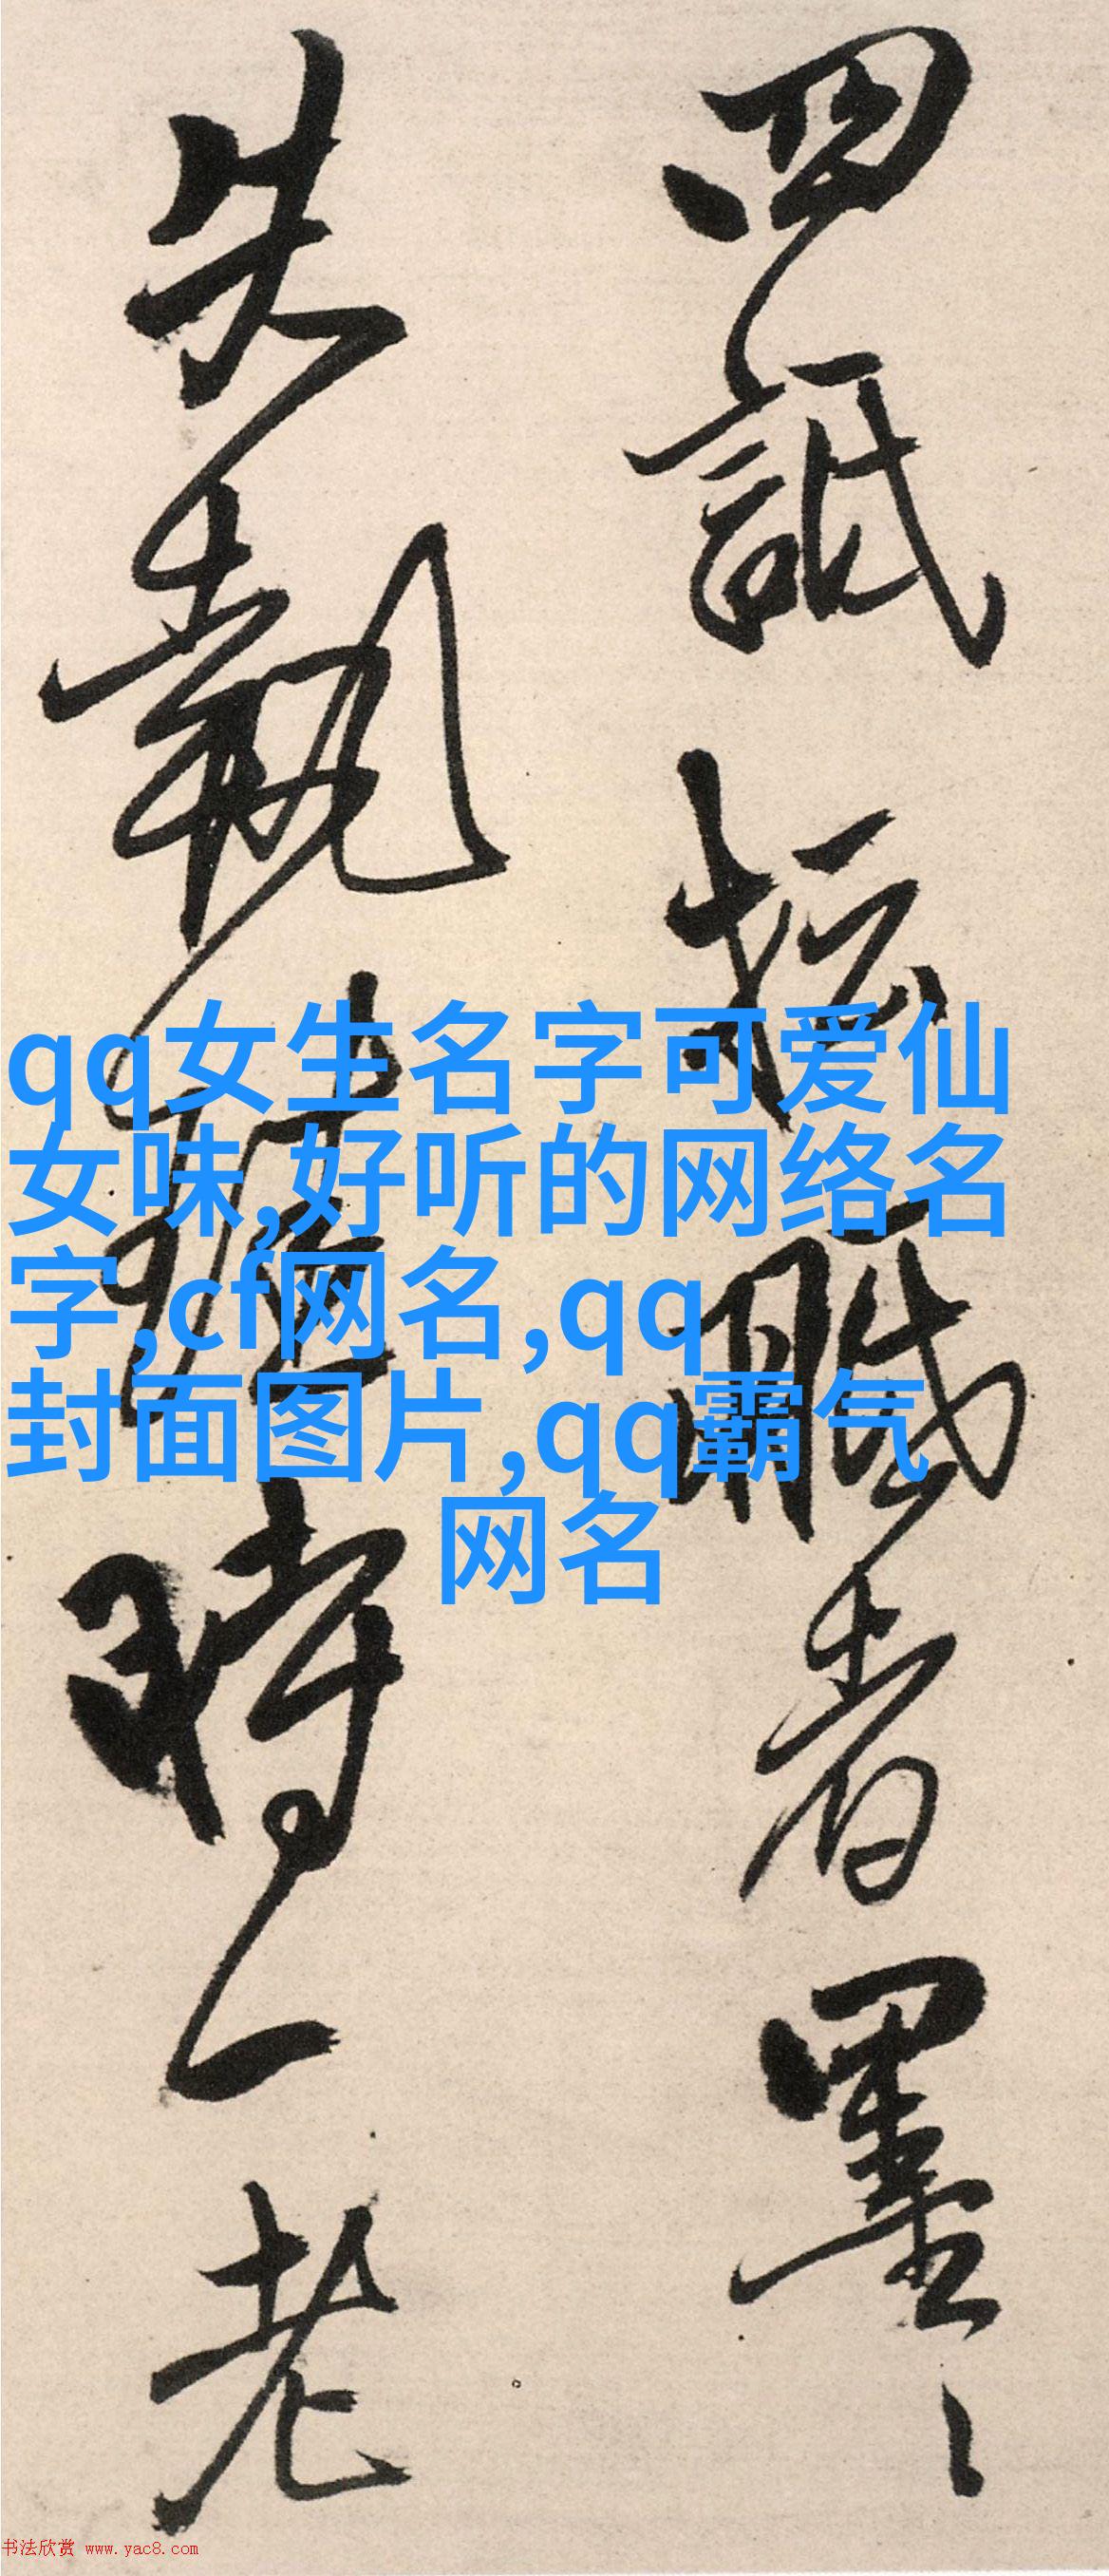 四詆坛職者墨〻
失執
時一老
qq女生名字可爱仙
女味,好听的网络名
字,cf网名,qq
封面图片,qq霸气
网名
书法欣赏 www.yac8.com